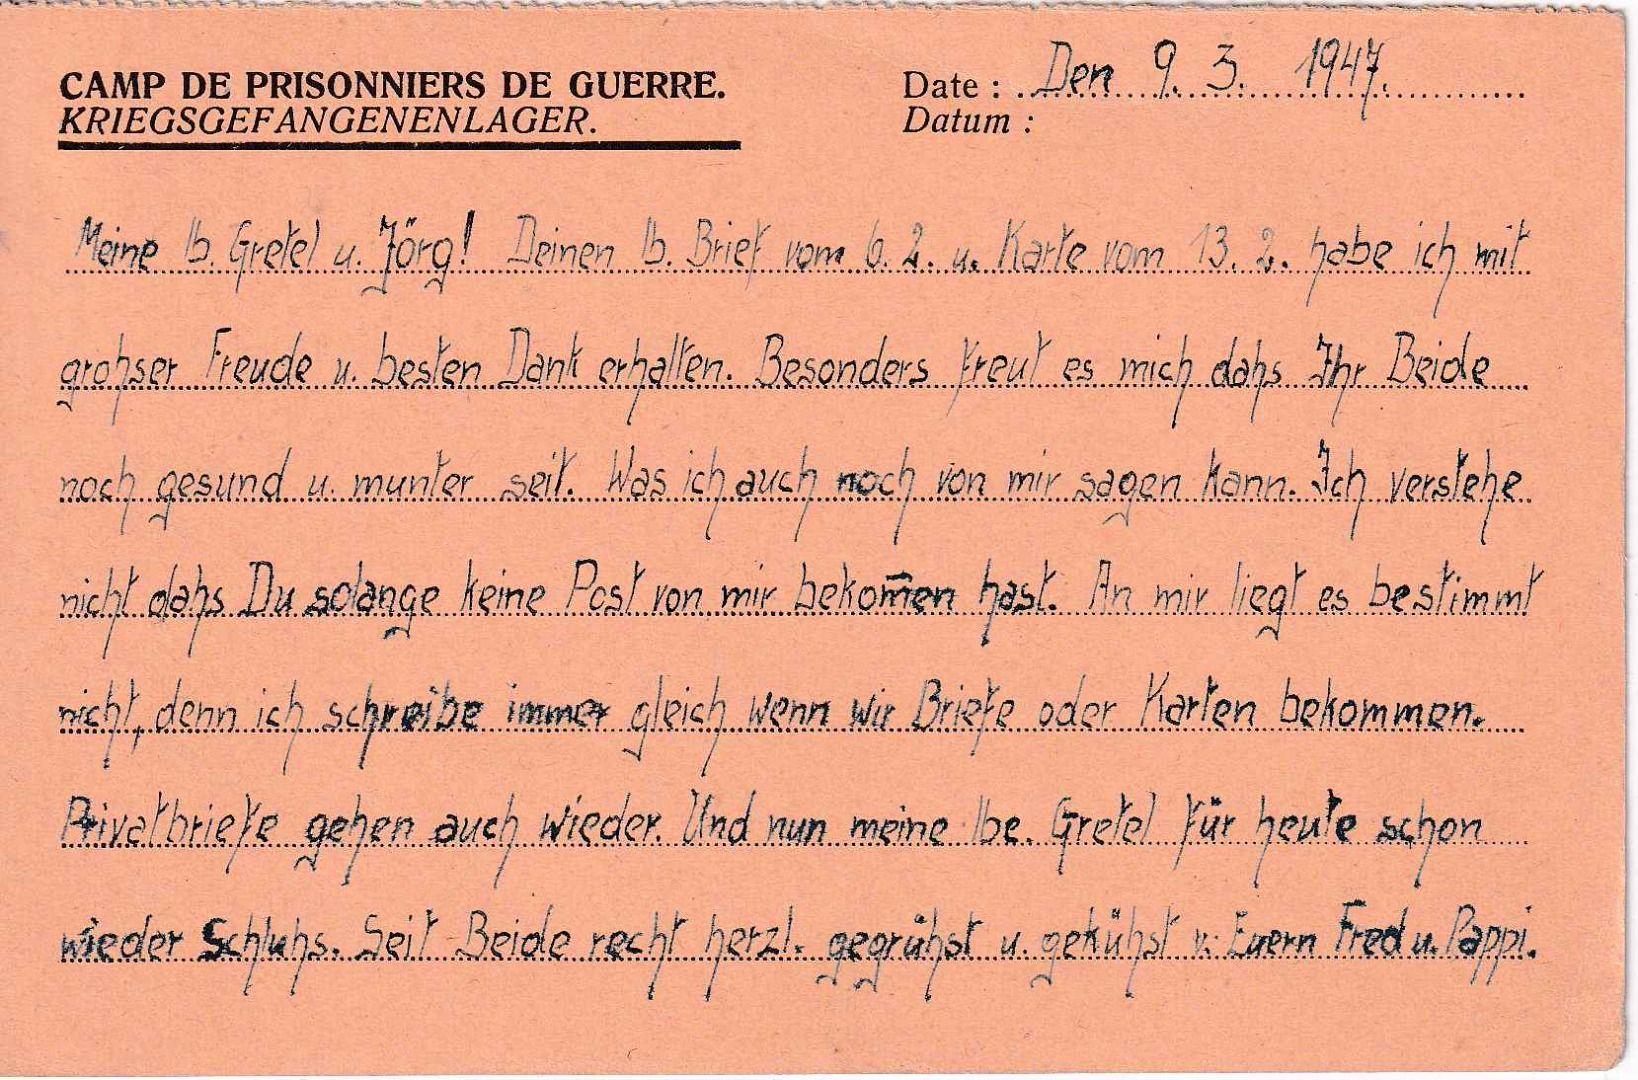 CAMP DE PRISONNIERS DE GUERRE.
KRIEGSGEFANGENENLAGER.
Date : Den 9. 3. 1947.
Datum :
Meine lb. Gretel u. Jörg! Deinen lb. Brief vom 6. 2. u. Karte vom 13. 2. habe ich mit
grohser Freude u. besten Dank erhalten. Besonders freut es mich dahs Ihr Beide
noch gesund u. munter seit. Was ich auch noch von mir sagen kann. Ich verstehe
nicht dahs Du solange keine Post von mir bekom̅en hast. An mir liegt es bestimmt
nicht, denn ich schreibe immer gleich wenn wir Briefe oder Karten bekommen.
Privatbriefe gehen auch wieder. Und nun meine lbe. Gretel für heute schon
wieder Schluhs. Seit Beide recht herzl. gegrühst u. gekühst v. Euern Fred u. Pappi.